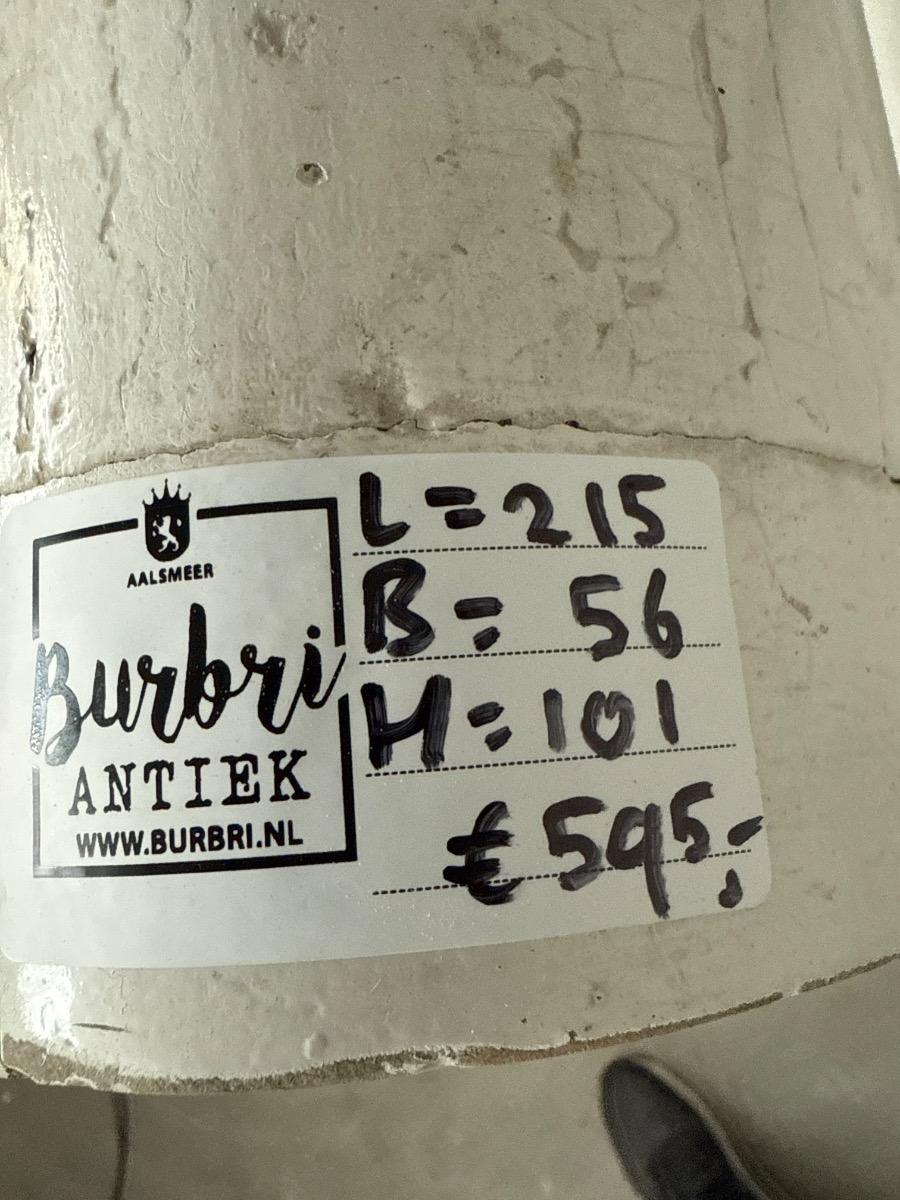 AALSMEER
Burbri
ANTIEK
WWW.BURBRI.NL
L = 215
B = 56
H = 101
€ 595,-